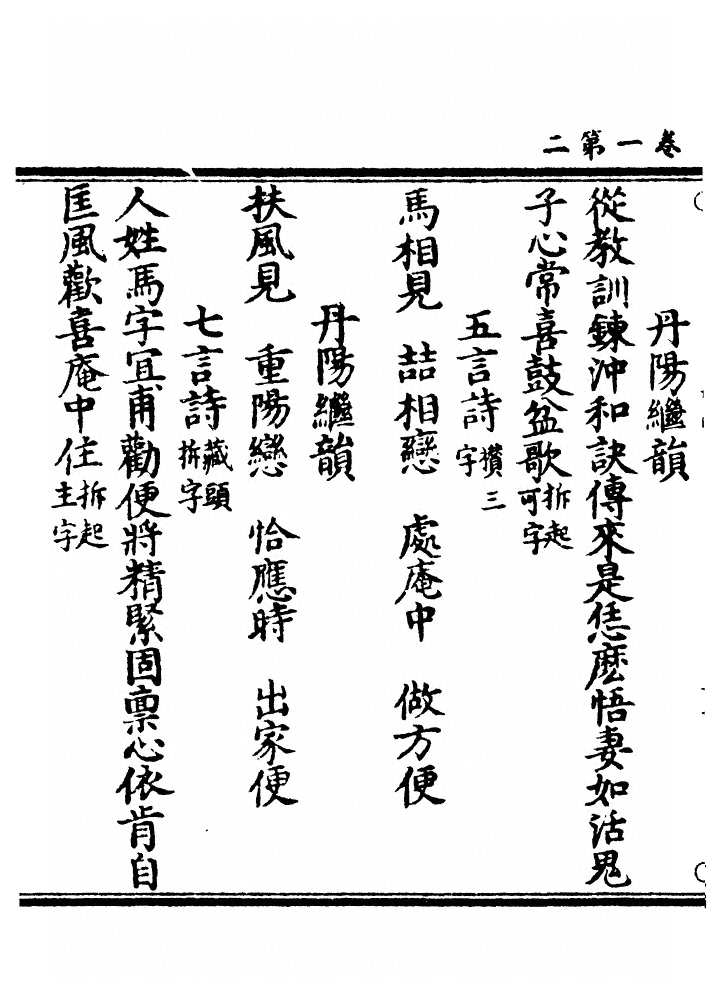 卷一第二
丹陽繼韻
從教訓鍊沖和訣傳來是恁麼悟妻如活鬼
子心常喜鼓盆歌拆起可字
五言詩攢三字
馬相見　喆相戀　處庵中　做方便
丹陽繼韻
扶風見　重陽戀　恰應時　出家便
七言詩藏頭拆字
人姓馬字宜甫勸便將精緊固禀心依肯自
匡風歡喜庵中住拆起主字